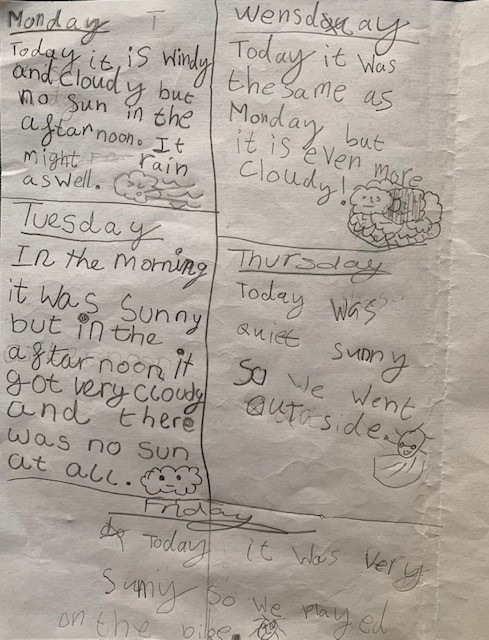 Monday T
Today it is windy
and cloudy but
no sun in the
aftarnoon. It
might rain
aswell.
Wensday
Today it was
the same as
Monday but
it is even more
cloudy!
Tuesday
In the morning
it was sunny
but in the
aftarnoon it
got very cloudy
and there
was no sun
at all.
Thursday
Today was
quiet sunny
So we went
outaside.
Friday
Today it was very
Suniy so we played
on the bike.